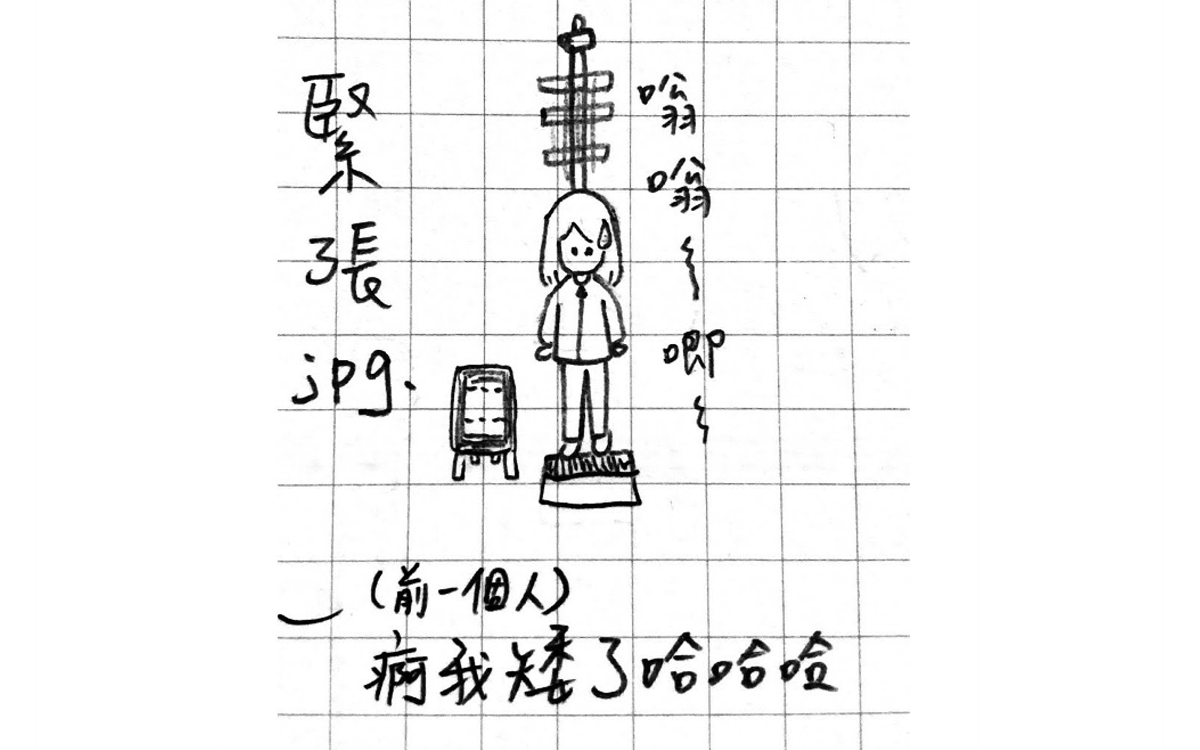 緊張
jpg.
嗡嗡~唧~
(前一個人)
痾我矮了哈哈哈